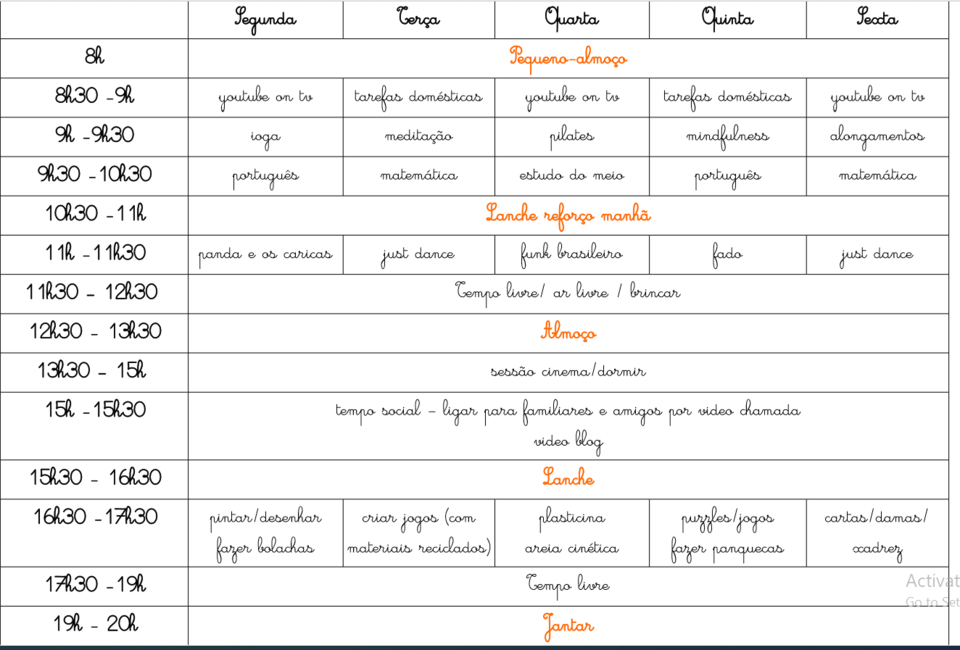 Segunda Terça Quarta Quinta Sexta
8h Pequeno-almoço
8h30 -9h youtube on tv tarefas domésticas youtube on tv tarefas domésticas youtube on tv
9h -9h30 ioga meditação pilates mindfulness alongamentos
9h30 -10h30 português matemática estudo do meio português matemática
10h30 -11h Lanche reforço manhã
11h -11h30 panda e os caricas just dance funk brasileiro fado just dance
11h30 - 12h30 Tempo livre/ ar livre / brincar
12h30 - 13h30 Almoço
13h30 - 15h sessão cinema/dormir
15h -15h30 tempo social - ligar para familiares e amigos por video chamada
video blog
15h30 - 16h30 Lanche
16h30 -17h30 pintar/desenhar criar jogos (com plasticina puzzles/jogos cartas/damas/
fazer bolachas materiais reciclados) areia cinética fazer panquecas xadrez
17h30 -19h Tempo livre
Activat
Go to Set
19h - 20h Jantar